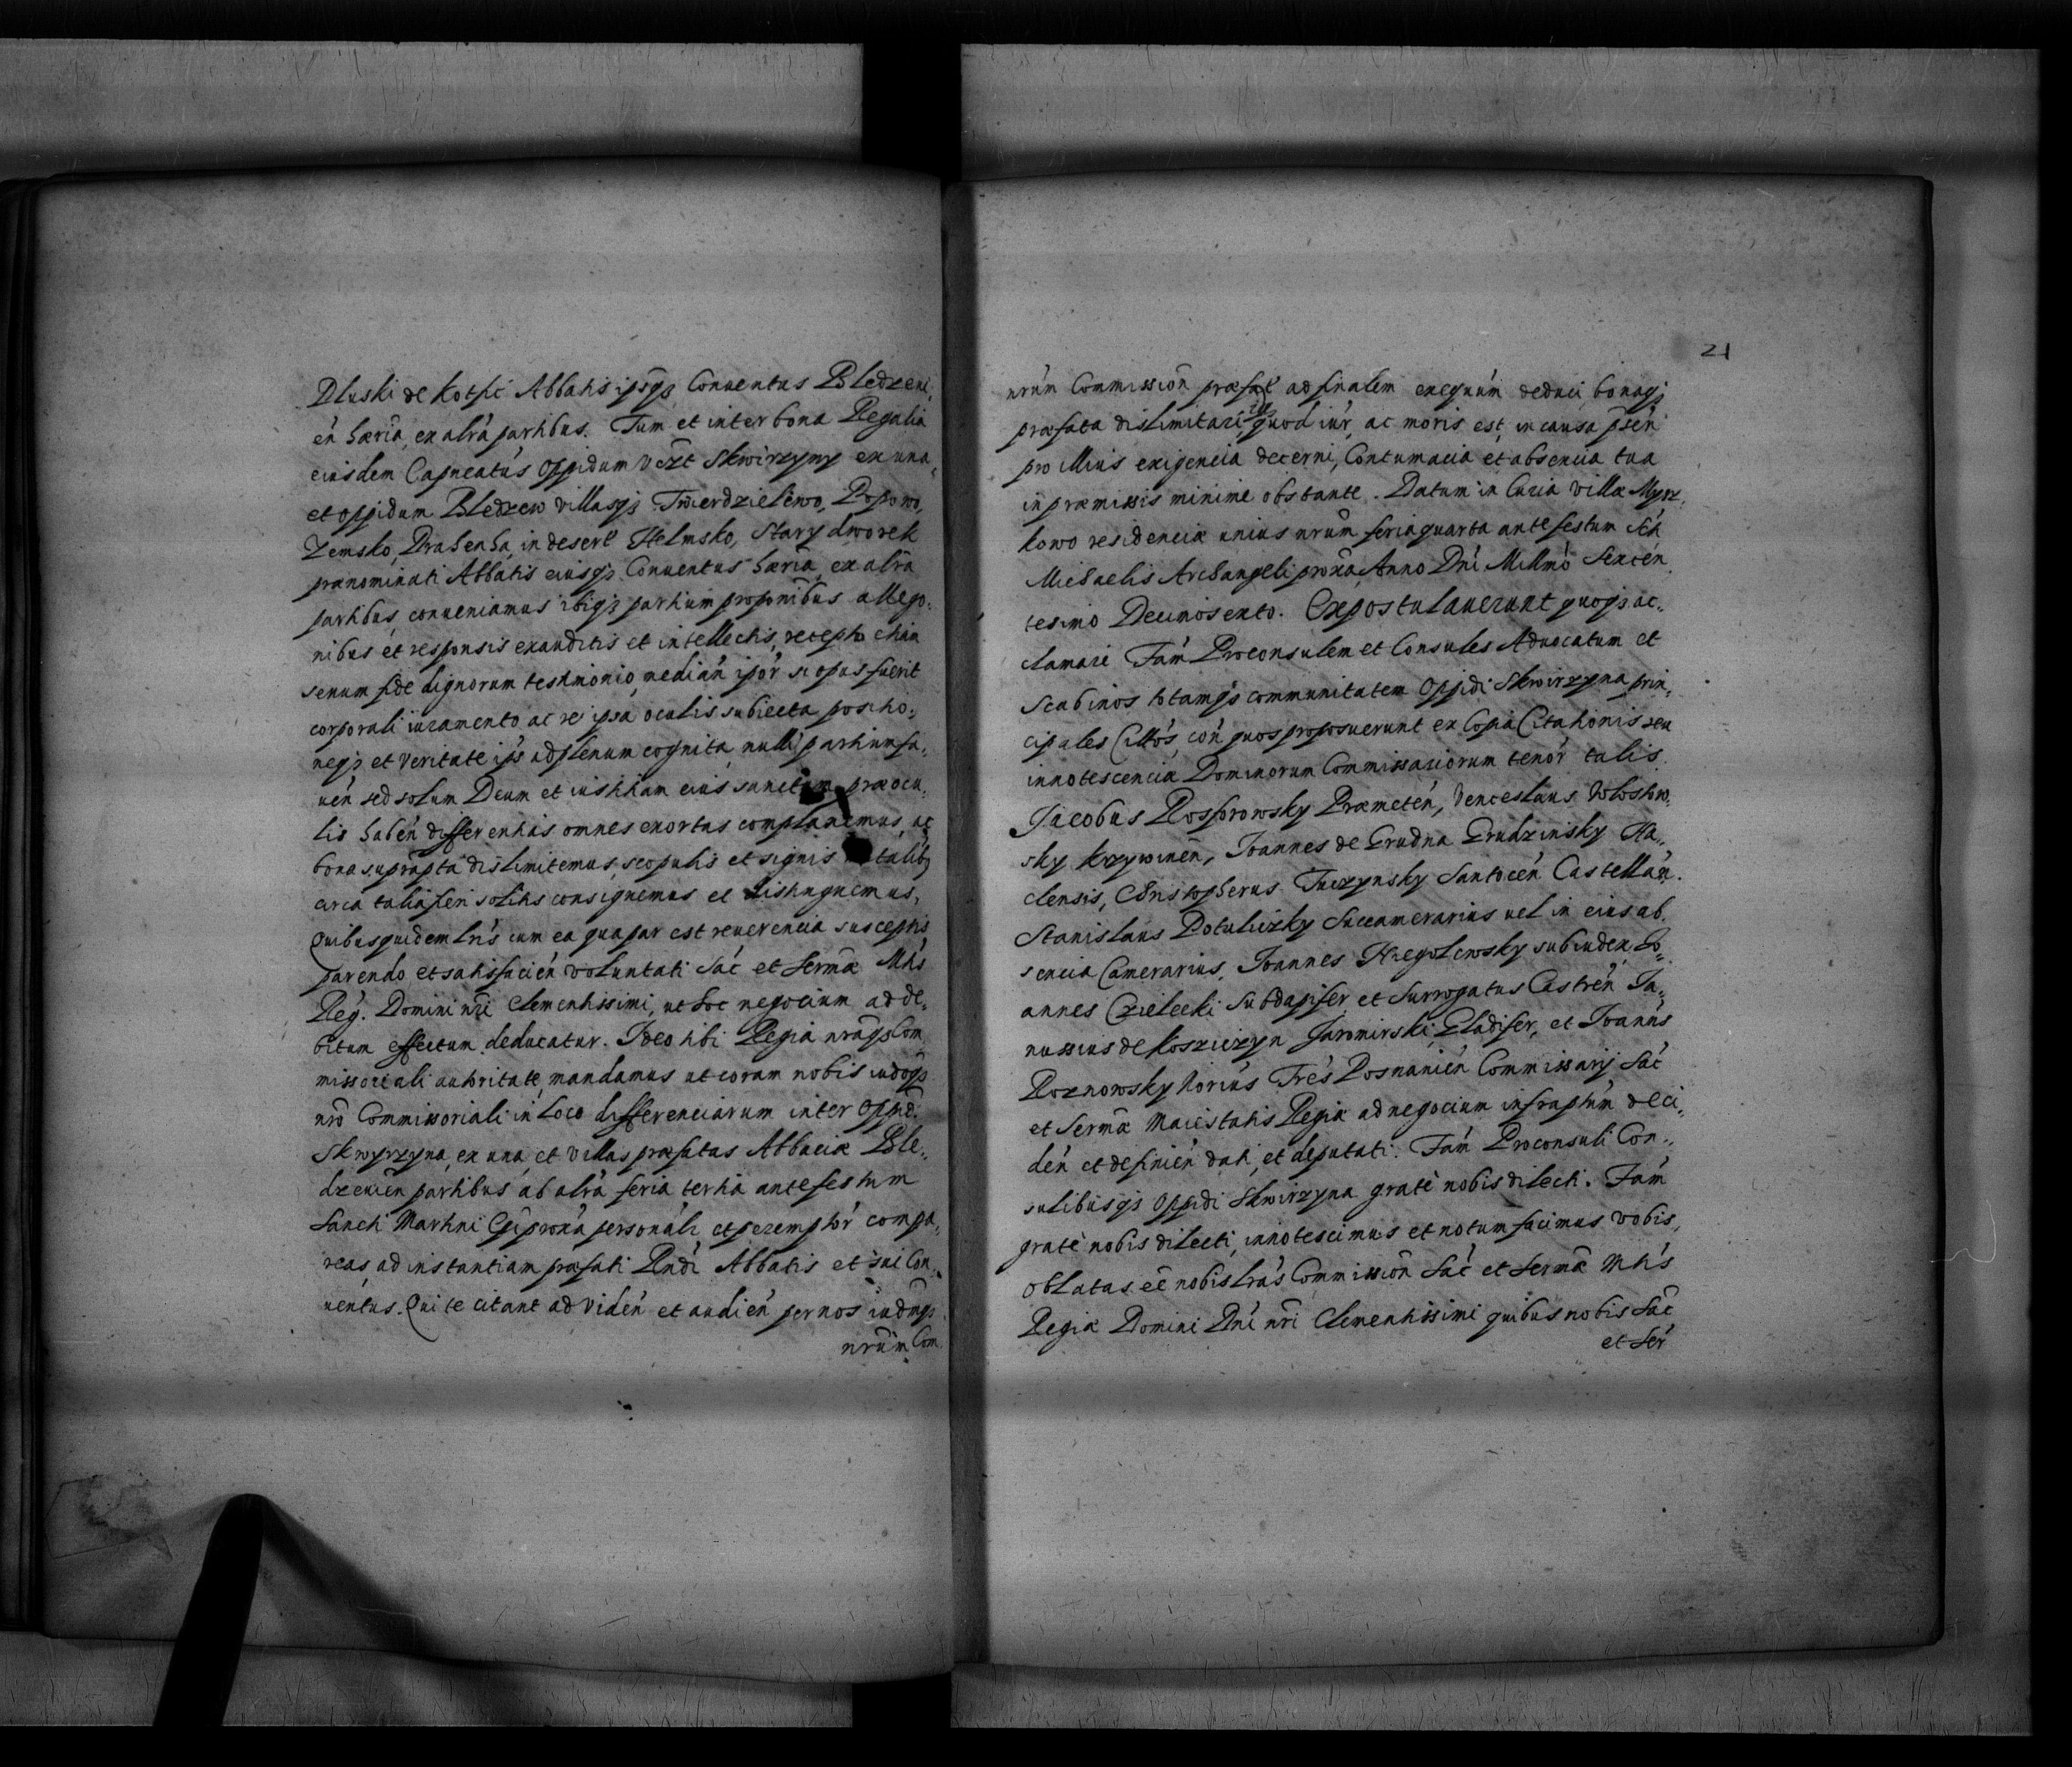 Pluski de Kothi Abbatis ipsqz Conuentus Bledzeui,
en hæria, ex alrà partibus. Tum et inter bona Regalia
eiusdem Capneatús Oppidum vczt Skwirzyny ex una,
et oppidum Bledzew villasqz Twierdzielewo, Popowo,
Zemsko, in desert Helmsko, Stary dworek
prænominati Abbatis eiusqz Conuentus hæria, ex alrà
partibus, conueniamus ibiqz partium proponibus allega,
nibus et responsis exauditis et intellectis, recepto etiam
senum fide dignorum testimonio, median ipór si opus fuerit
corporali iuramento ac re ipsa oculis subiecta positio,
neqz et veritate ips ad plenum cognita, nulli partium fa,
uén sed solum Deum et iustitiam eius sanctam præocu,
lis habén differentias omnes exortas complanemus, ac
bona suprapta dislimitemus, scopulis et signis metalibz
circa talia fieri solitis consignemus et distinguemus,
Quibus quidem lrís cum ea qua par est reuerencia susceptis
parendo et satisfacién voluntati Sac et Sermæ Mtis
Reg. Domini nri Clementissimi, ut hoc negocium ad de,
bitum effectum deducatur. Ideo tibi Regia nraqz Com
missoriali autoritate, mandamus ut coram nobis iudoqz
nro Commissoriali in Loco differenciarum inter Oppid.
Skwyrzyna, ex una, et villas præfatas Abbaciæ Ble,
dzeuien partibus ab alrà feria tertia ante festum
Sancti Martini Epi proxa personali, et peremptor compa,
reas, ad instantiam præfati Rndi Abbatis et sui Con,
uentus. Qui te citant ad vidén et audién per nos iudmqz
nrum Com
21
nrúm Commission præfat ad finalem exequúm deduci, bonaqz
præfata dislimitari, idqz quod iúr, ac moris est, in causa psén
pro illius exigencia decerni, Contumacia et absencia tua
in præmissis minime obstante. Datum in Curia villæ Mysz,
kowo residenciæ unius nrum feria quarta ante festum Sti
Michaelis Archangeli proxa, Anno Dni Millmo Sexcen,
tesimo Decimosexto. Expostulauerunt quoqz ac,
clamari Fam Proconsulem et Consules Aduocatum et
Scabinos totamqz communitatem Oppidi Skwirzyna prin,
cipales Cittos, con quos proposuerunt ex Copia Citationis seu
innotescencia Dominorum Commissariorum tenór talis.
Jacobus Rosporowsky Præmetén, Venceslaus
sky Krzywinen, Joannes de Grudna Grudzinsky Na,
clensis, Christopherus Tuczynsky Santocén Castellán.
Stanislaus Potulizky Succamerarius uel in eius ab,
sencia Camerarius, Joannes Niegolewsky subiudex, Jo,
annes Czielecki Subdapifer et Surrogatus Castren, Ja,
nussius de Kosziczyn Jaromirski Gladifer, et Joannes
Roznowsky Notius Tres Posnanién Commissarij Sac
et Sermæ Maiestatis Regiæ ad negocium infraptum deci,
dén et definién dati, et deputati. Fam Proconsuli Con,
sulibusqz oppidi Skwirzyna gratè nobis dilecti. Fam
gratè nobis dilecti, innotescimus et notum facimus vobis,
oblatas eé nobis lras Commission Sac et Sermæ Mtis
Regiæ Domini Dni nri Clementissimi quibus nobis Sac
et Ser